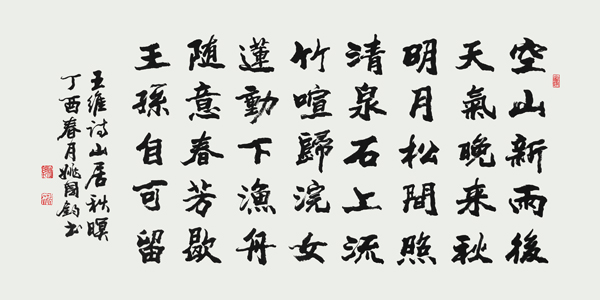 空山新雨後
天氣晚来秋
明月松間照
清泉石上流
竹喧歸浣女
蓮動下漁舟
随意春芳歇
王孫自可留
王維诗山居秋暝
丁酉春月姚国钧书